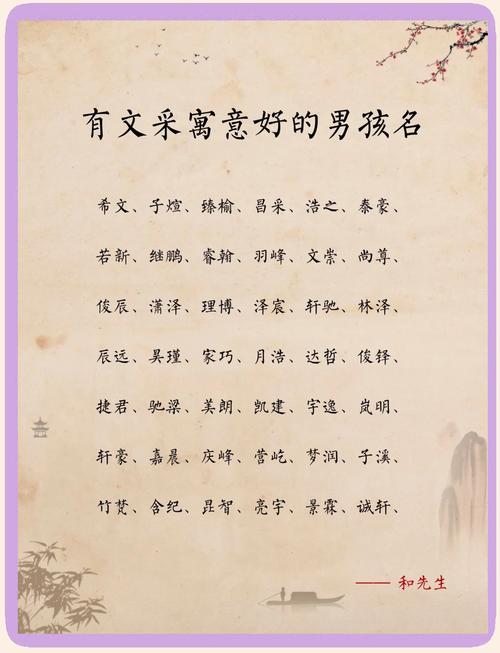 有文采寓意好的男孩名
希文、子煊、臻榆、昌采、浩之、泰豪、
若新、继鹏、睿翰、羽峰、文崇、尚尊、
俊辰、潇泽、理博、泽宸、轩驰、林泽、
辰远、昊瑾、家巧、月浩、达哲、俊铎、
捷君、驰梁、美朗、凯建、宇逸、岚明、
轩豪、嘉晨、庆峰、营屹、梦润、子溪、
竹梵、含纪、昆智、亮宇、景霖、诚轩、
—— 和先生